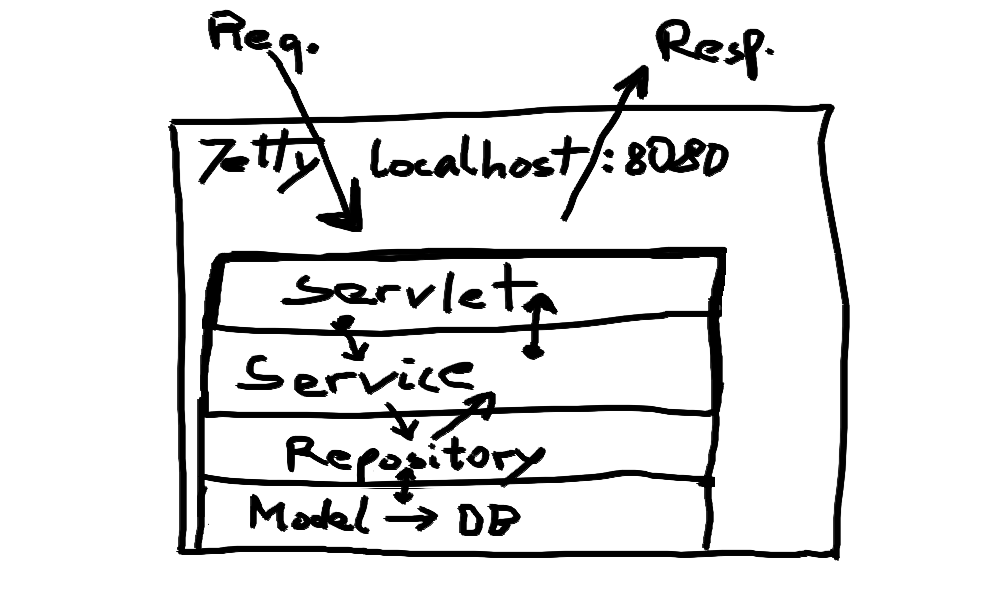 Req. Resp.
Jetty localhost:8080
Servlet
Service
Repository
Model → DB